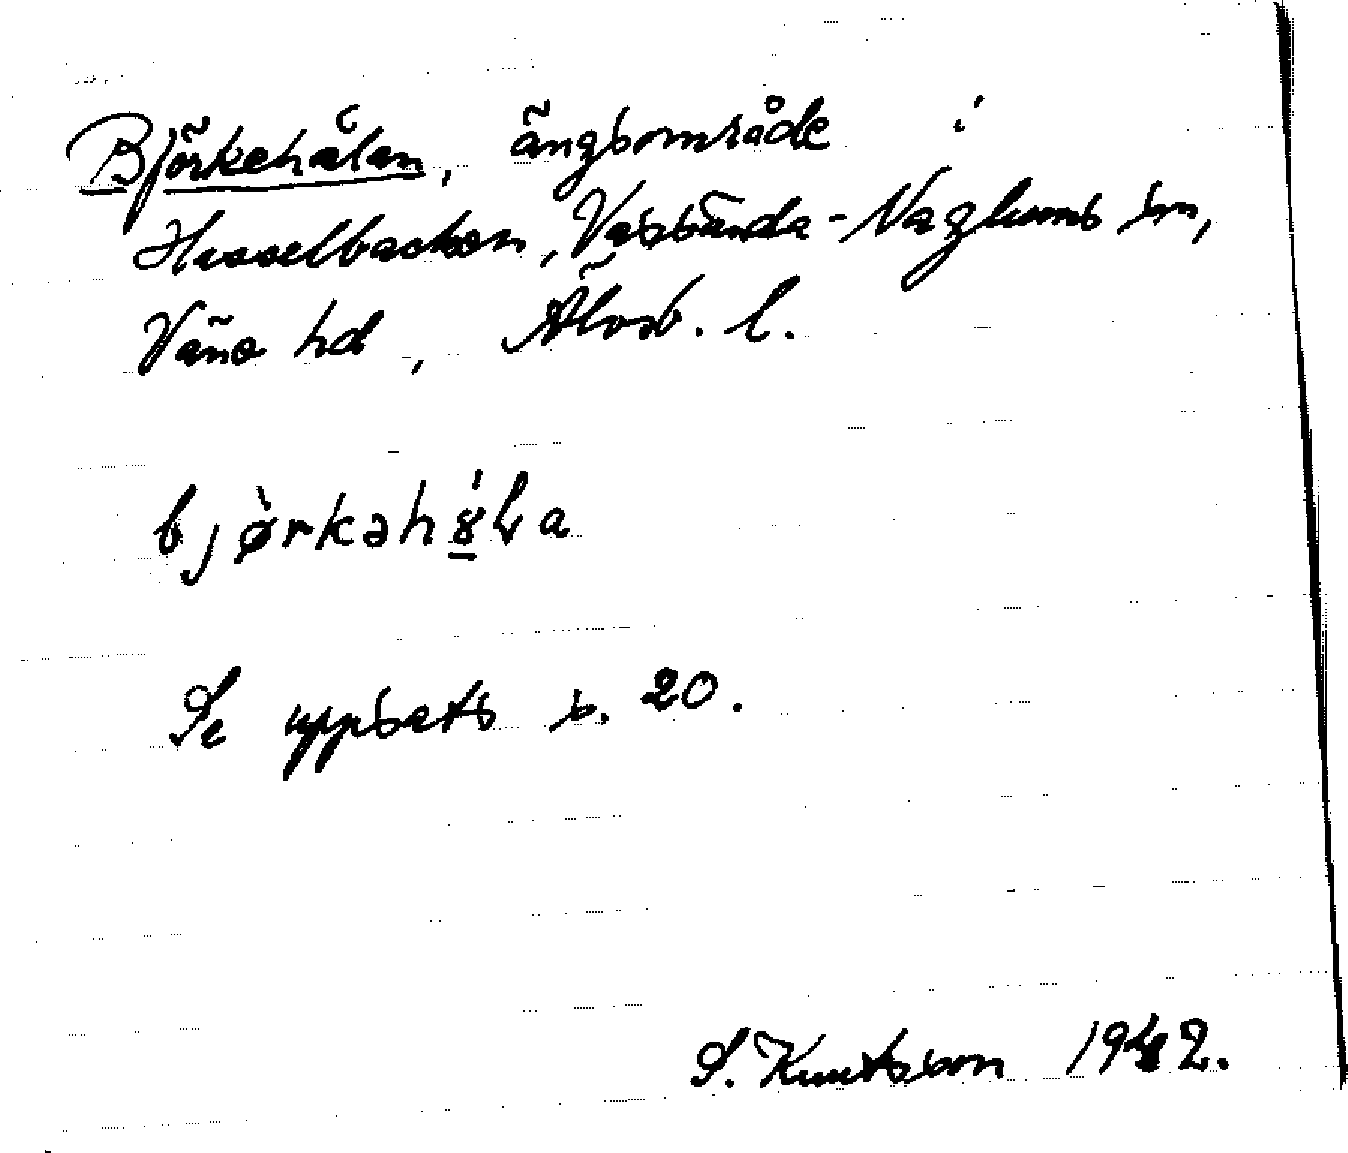 Björkehålan, ängsområde i
Hasselbacken, Vassända-Naglums sn,
Väne hd, Älvsb. l.
bjørkəhɤ̲́ɫa
Se uppsats s. 20.
S. Knutsson 1942.